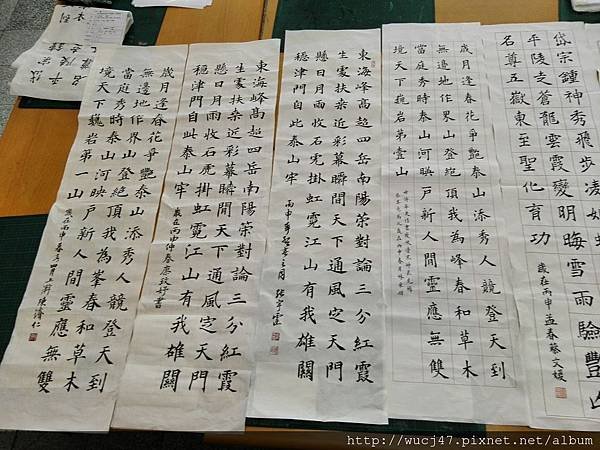 岱宗鍾神秀飛
平陵走蒼龍雲霞變明晦雪雨驗豐凶
名尊五嶽東至聖化育功
歲在丙申孟春蔡文媛
歲月逢春花爭艷泰山添秀人競登天到
無邊地作界山登絕頂我為峰春和草木
當庭秀時泰山河映戶新人間靈應無雙
境天下巍岩第壹山
東海峰高超四岳南陽榮對論三分紅霞
生處扶桑近彩幕瞬間天下通風定天門
懸日月雨收石虎掛虹霓江山有我雄關
穩津門自此泰山牢
丙申年
東海峰高超四岳南陽榮對論三分紅霞
生處扶桑近彩幕瞬間天下通風定天門
懸日月雨收石虎掛虹霓江山有我雄關
穩津門自此泰山牢
歲在丙申仲春廖玟妤書
歲月逢春花爭艷泰山添秀人競登天到
無邊地作界山登絕頂我為峯春和草木
當庭秀時泰山河映戶新人間靈應無雙
境天下巍岩第一山
歲在丙申春 陳濬仁
http://wucj47.pixnet.net/album